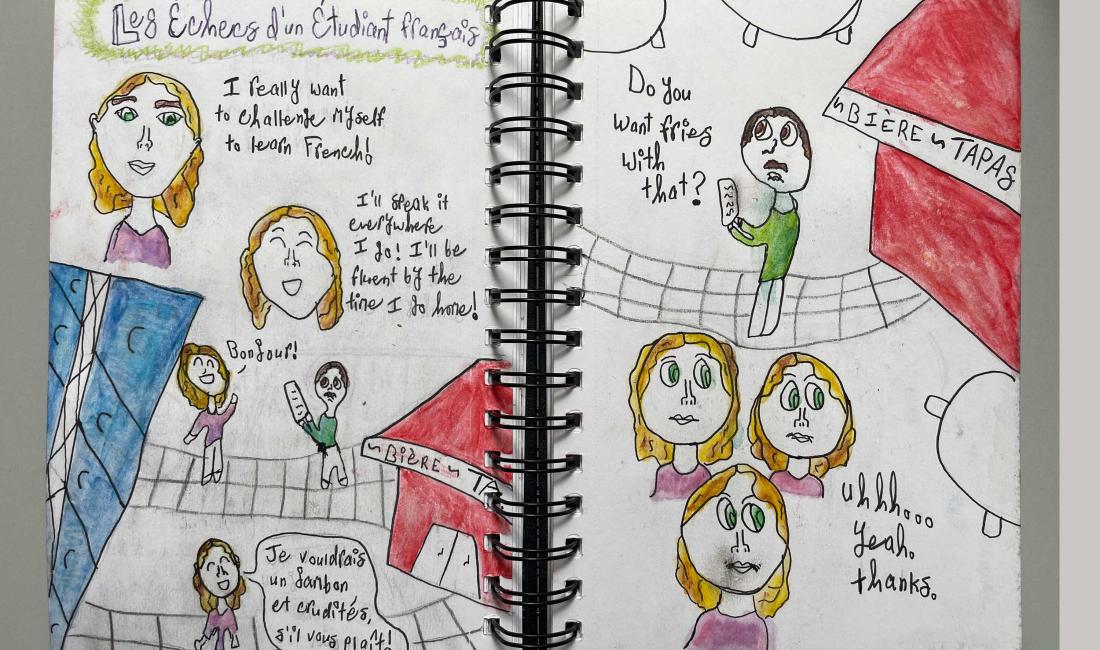 Les Échecs d'un Étudiant français
I really want
to challenge myself
to learn French!
I'll speak it
everywhere
I go! I'll be
fluent by the
time I go home!
Bonjour!
~ BIÈRE ~ TA
Je vouldrais
un Jambon
et crudités,
s'il vous plaît!
Do you
want fries
with
that?
~ BIÈRE ~ TAPAS
uhhh...
Yeah.
thanks.